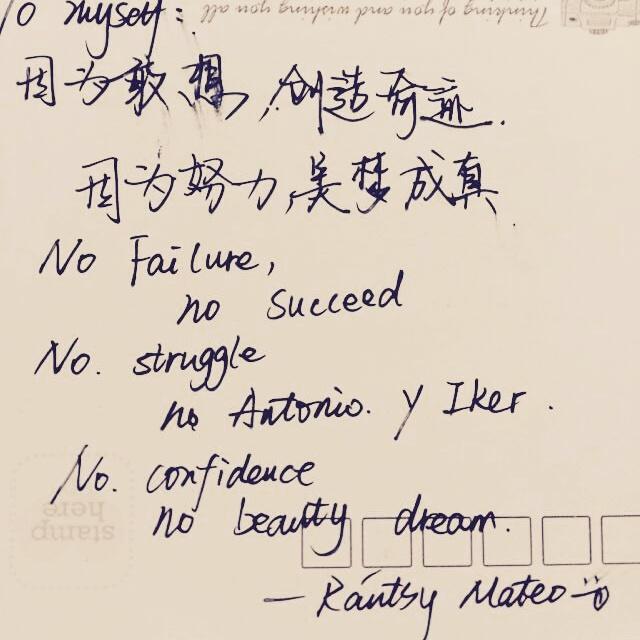 To myself:
Thinking of you and wishing you all
因为敢想,创造奇迹.
因为努力,美梦成真
No Failure,
no Succeed
No. struggle
no Antonio. y Iker.
No. confidence
no beautty dream.
stamp
here
— Rántsy Mateo